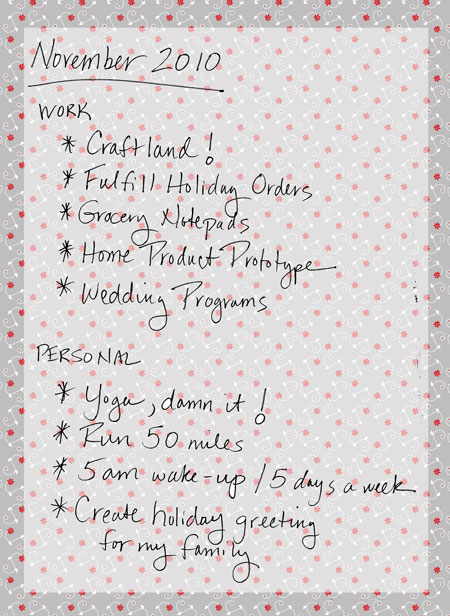 November 2010
WORK
* Craftland!
* Fulfill Holiday Orders
* Grocery Notepads
* Home Product Prototype
* Wedding Programs
PERSONAL
* Yoga, damn it!
* Run 50 miles
* 5am wake-up / 5 days a week
* Create holiday greeting
for my family